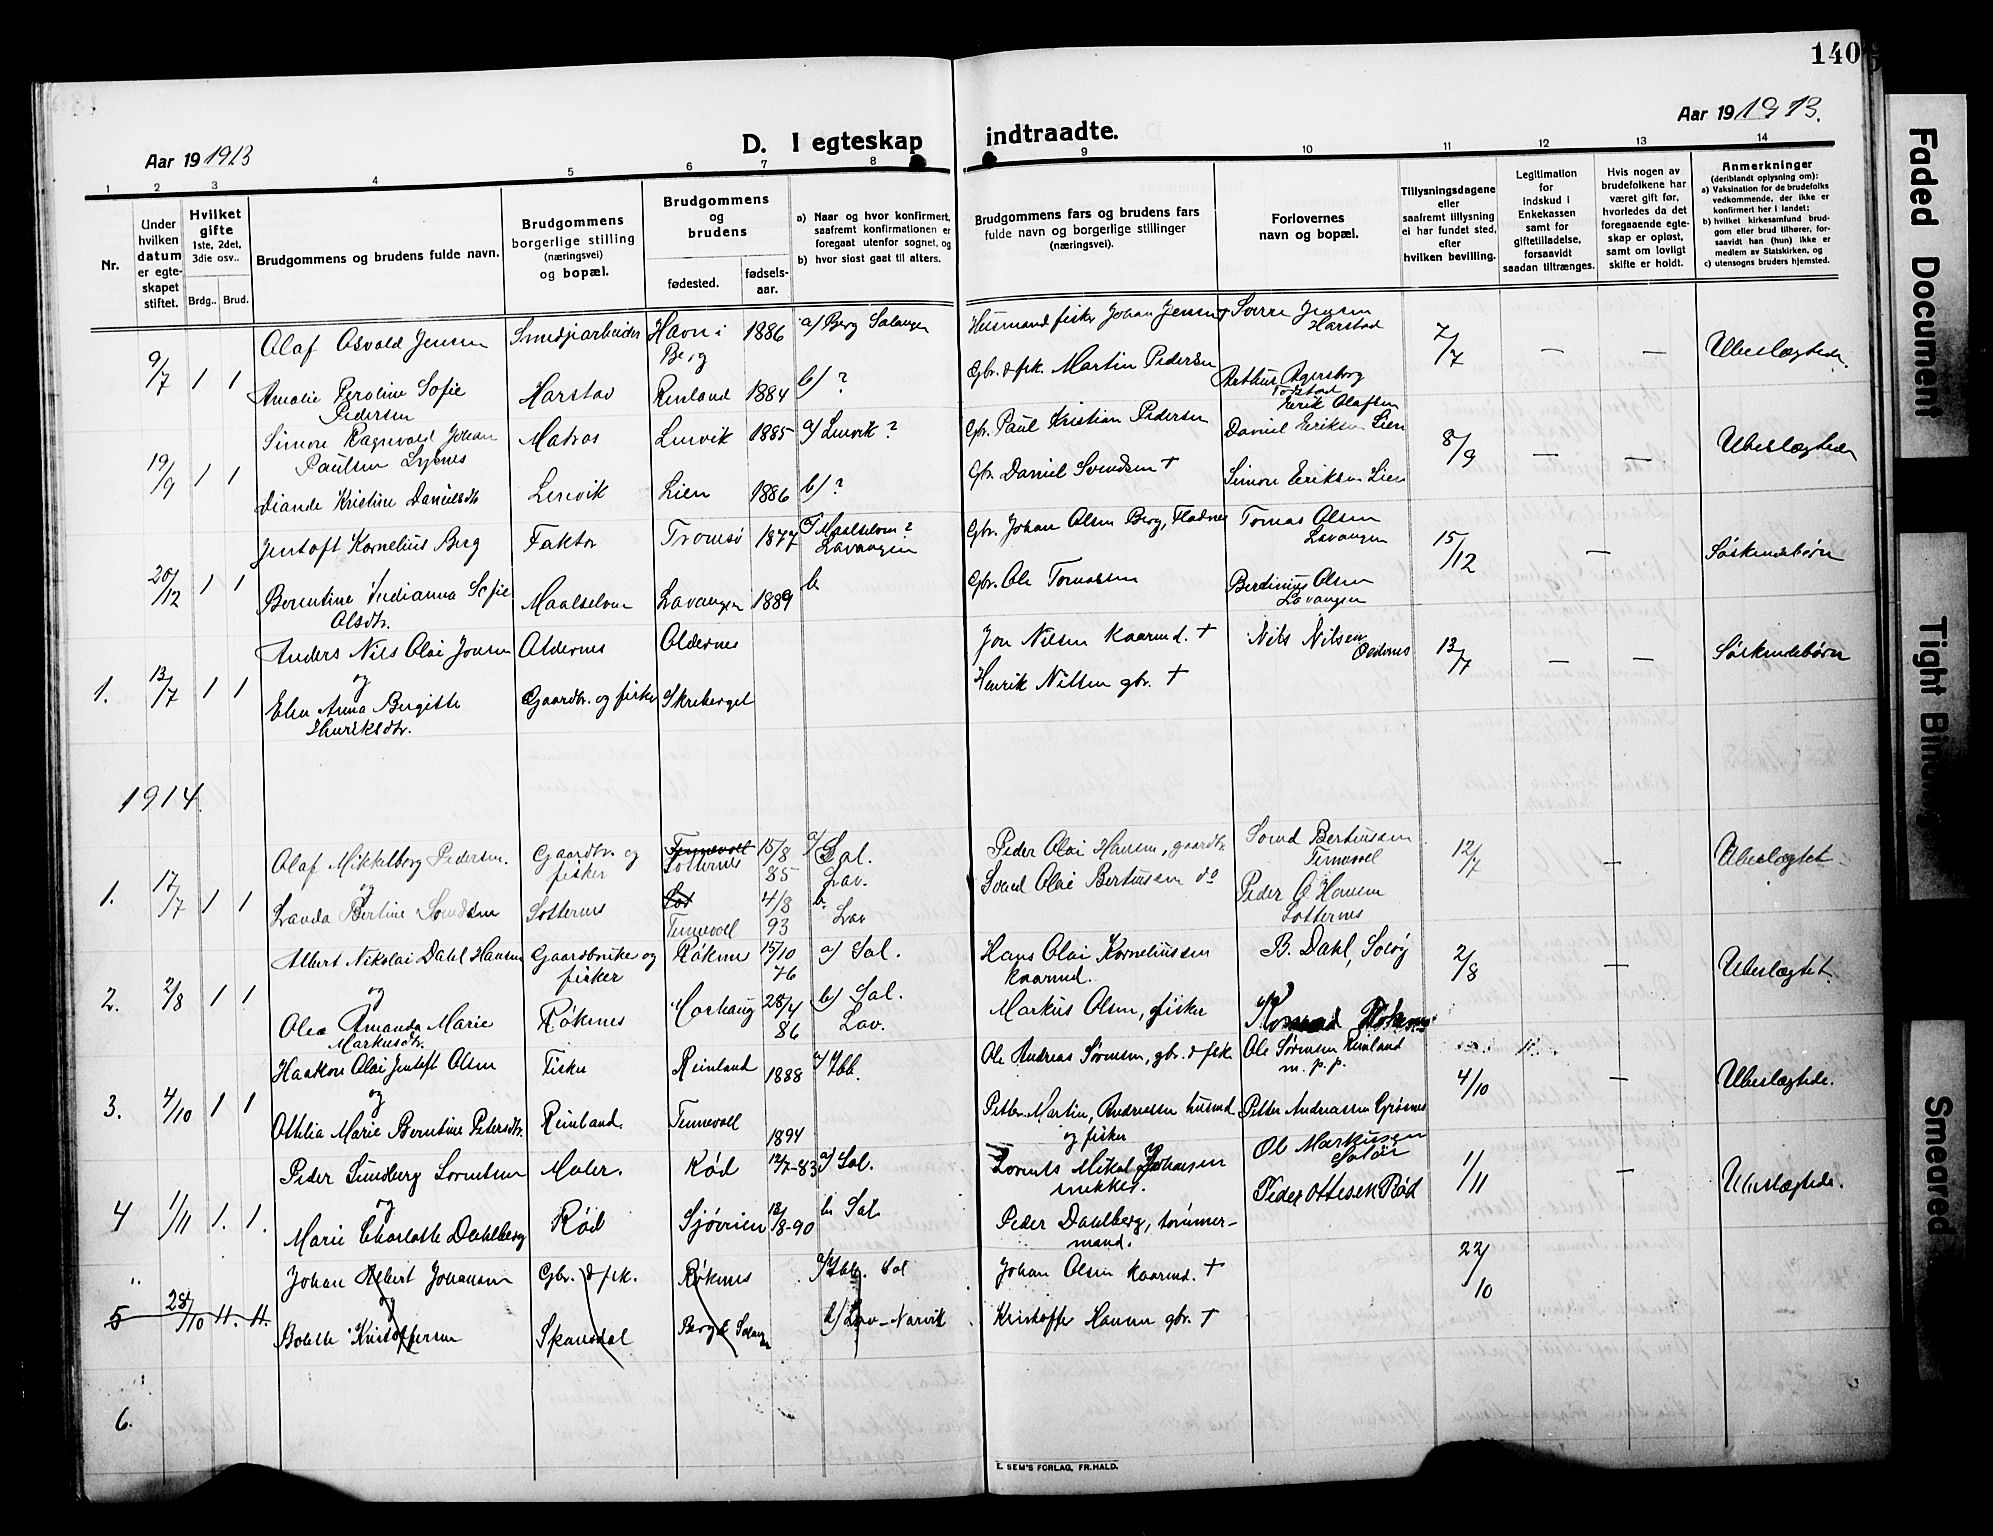 140
Aar 19 1913
D. I egteskap indtraadte.
Aar 19 1913.
1 2 3 4 5 6 7 8 9 10 11 12 13 14
Nr.
Under hvilken datum er egteskapet stiftet.
Hvilket gifte 1ste, 2det, 3die osv..
Brdg.. Brud.
Brudgommens og brudens fulde navn.
Brudgommens borgerlige stilling (næringsvei) og bopæl.
Brudgommens og brudens
fødested. fødselsaar.
a) Naar og hvor konfirmert, saafremt konfirmationen er foregaat utenfor sognet, og
b) hvor sidst gaat til alters.
Brudgommens fars og brudens fars fulde navn og borgerlige stillinger (næringsvei).
Forlovernes navn og bopæl.
Tillysningsdagene eller saafremt tillysning ei har fundet sted, efter hvilken bevilling.
Legitimation for indskud i Enkekassen samt for giftetilladelse, forsaavidt saadan tiltrænges.
Hvis nogen av brudefolkene har været gift før, hvorledes da det foregaaende egteskap er opløst, samt om lovligt skifte er holdt.
Anmerkninger (deriblandt oplysning om):
a) Vaksination for de brudefolks vedkommende, der ikke er konfirmert her i landet;
b) hvilket kirkesamfund brudgom eller brud tilhører, forsaavidt han (hun) ikke er medlem av Statskirken, og
c) utensogns bruders hjemsted.
9/7 1 1 Olaf Osvald Jensen Smedjiarbeider Havn i Berg 1886 a) Berg Salangen Husmand fisker Johan Jensen Sverre Jensen Harstad 7/7 — — Ubeslægtede
Amalie Peroline Sofie Pedersen Harstad Renland 1884 b) ? Gbr. & fsk. Martin Pedersen Arthur Agersborg
19/9 1 1 Simon Ragnvald Johan Paulsen Matros Lenvik 1885 a) Lenvik ? Gbr. Paul Kristian Pedersen Erik Olafsen Daniel Eriksen Lien 8/9 — — Ubeslægtede
Kristine Danielsdtr Lenvik Lien 1886 b) ? Gbr. Daniel Svendsen † Simon Eriksen Lien
20/12 1 1 Jentoft Kornelius Berg Faktor Tromsø 1877 a) Maalselven ? Lavangen Gbr. Johan Olsen Berg, Fladnes Tomas Olsen Lavangen 15/12 — Søskendebørn
Berentine Indianna Sofie Olsdtr. Maalselven Lavangen 1889 b Gbr. Ole Tomassen Berdinius Olsen Lavangen
1. 13/7 1 1 Anders Nils Olai Jonsen Oldernes Oldernes Jon Nilsen kaarmd. † Nils Nilsen Oldernes 13/7 — — Søskendebørn
og
Elen Anna Bergitte Henriksdtr. Gaardbr. og fisker Skreberget Henrik Nilsen gbr. †
1914.
1. 17/7 1 1 Olaf Mikkelborg Pedersen. Gaardbr. og fisker Tennevoll Sotternes 15/8 85 a) Sal. Lav. Peder Olai Hansen, gaardbr Svend Bertiussen Tennevoll 12/7 — Ubeslægtet
og
Landa Bertine Svendsen Sotternes Sot Tennevoll 4/8 93 b. Lav Svend Olai Bertiussen do Peder O Hansen Sotternes
2. 2/8 1 1 Albert Nikolai Dahl Hansen Gaardbruker og fisker Røknes 15/10 76 a) Sal. Hans Olai Korneliussen kaarmd. B. Dahl, Soløy 2/8 — Ubeslægtet.
og
Olea Amanda Marie Markusdtr. Røknes Morhaug 28/4 86 b) Sal. Lav. Markus Olsen, fisker
3. 4/10 1 1 Haakon Olai Jentoft Olsen Fisker Reinland 1888 a) Ibb. Ole Andreas Sørensen, gbr. & fsk. Ole Sørensen Reinland m. p. p. 4/10 — Ubeslægtede.
og
Othilia Marie Berntine Petersdtr. Reinland. Tennevoll 1894 Petter Martin Andreassen husmd og fisker Petter Andreassen Grøsnes
4 1/11 1. 1. Peder Lundberg Lorentsen Maler. Rød 12/7-83 a) Sal. Lorents Mikal Johansen snekker. Ole Markusen Soløi 1/11 — Ubeslægtede.
og
Marie Charlotte Dahlberg Rød Sjøveien 12/8-90 b Sal. Peder Dahlberg, tømmermand. Peder Ottesen Rød
5 28/10 1. 1. Johan Albert Johansen Gbr. & fsk. Røknes a) Ibb. Sal Johan Olsen kaarmd. † 22/10
og
Bolette Kristoffersen Spansdal Berg i Salangen b) Lav - Narvik Kristoffer Hansen gbr. †
6.
E. SEM'S FORLAG, FR.HALD.
Faded Document
Tight Binding
Smeared